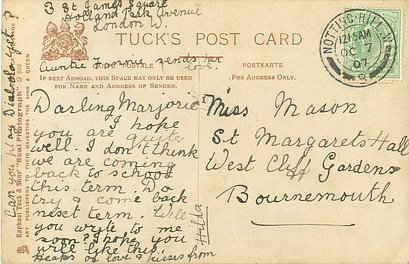 3 St James Square
Holland Park Avenue
London W.
TUCK'S POST CARD
CARTE POSTALE
POSTKARTE
Auntie Fannie sends her
love
IF SENT ABROAD, THIS SPACE MAY ONLY BE USED
FOR NAME AND ADDRESS OF SENDER.
NOTTING-HILL W.
12.15AM
OC 7
07
Can you play Diabolo yet?
Darling Marjorie
I hope
you are quite
well. I don't think
we are coming
back to school
this term. Do
try & come back
next term. Will
you write to me
soon? I hope you
will like this.
Heaps of love & kisses from
Hilda
Miss Mason
St Margarets Hall
West Cliff Gardens
Bournemouth